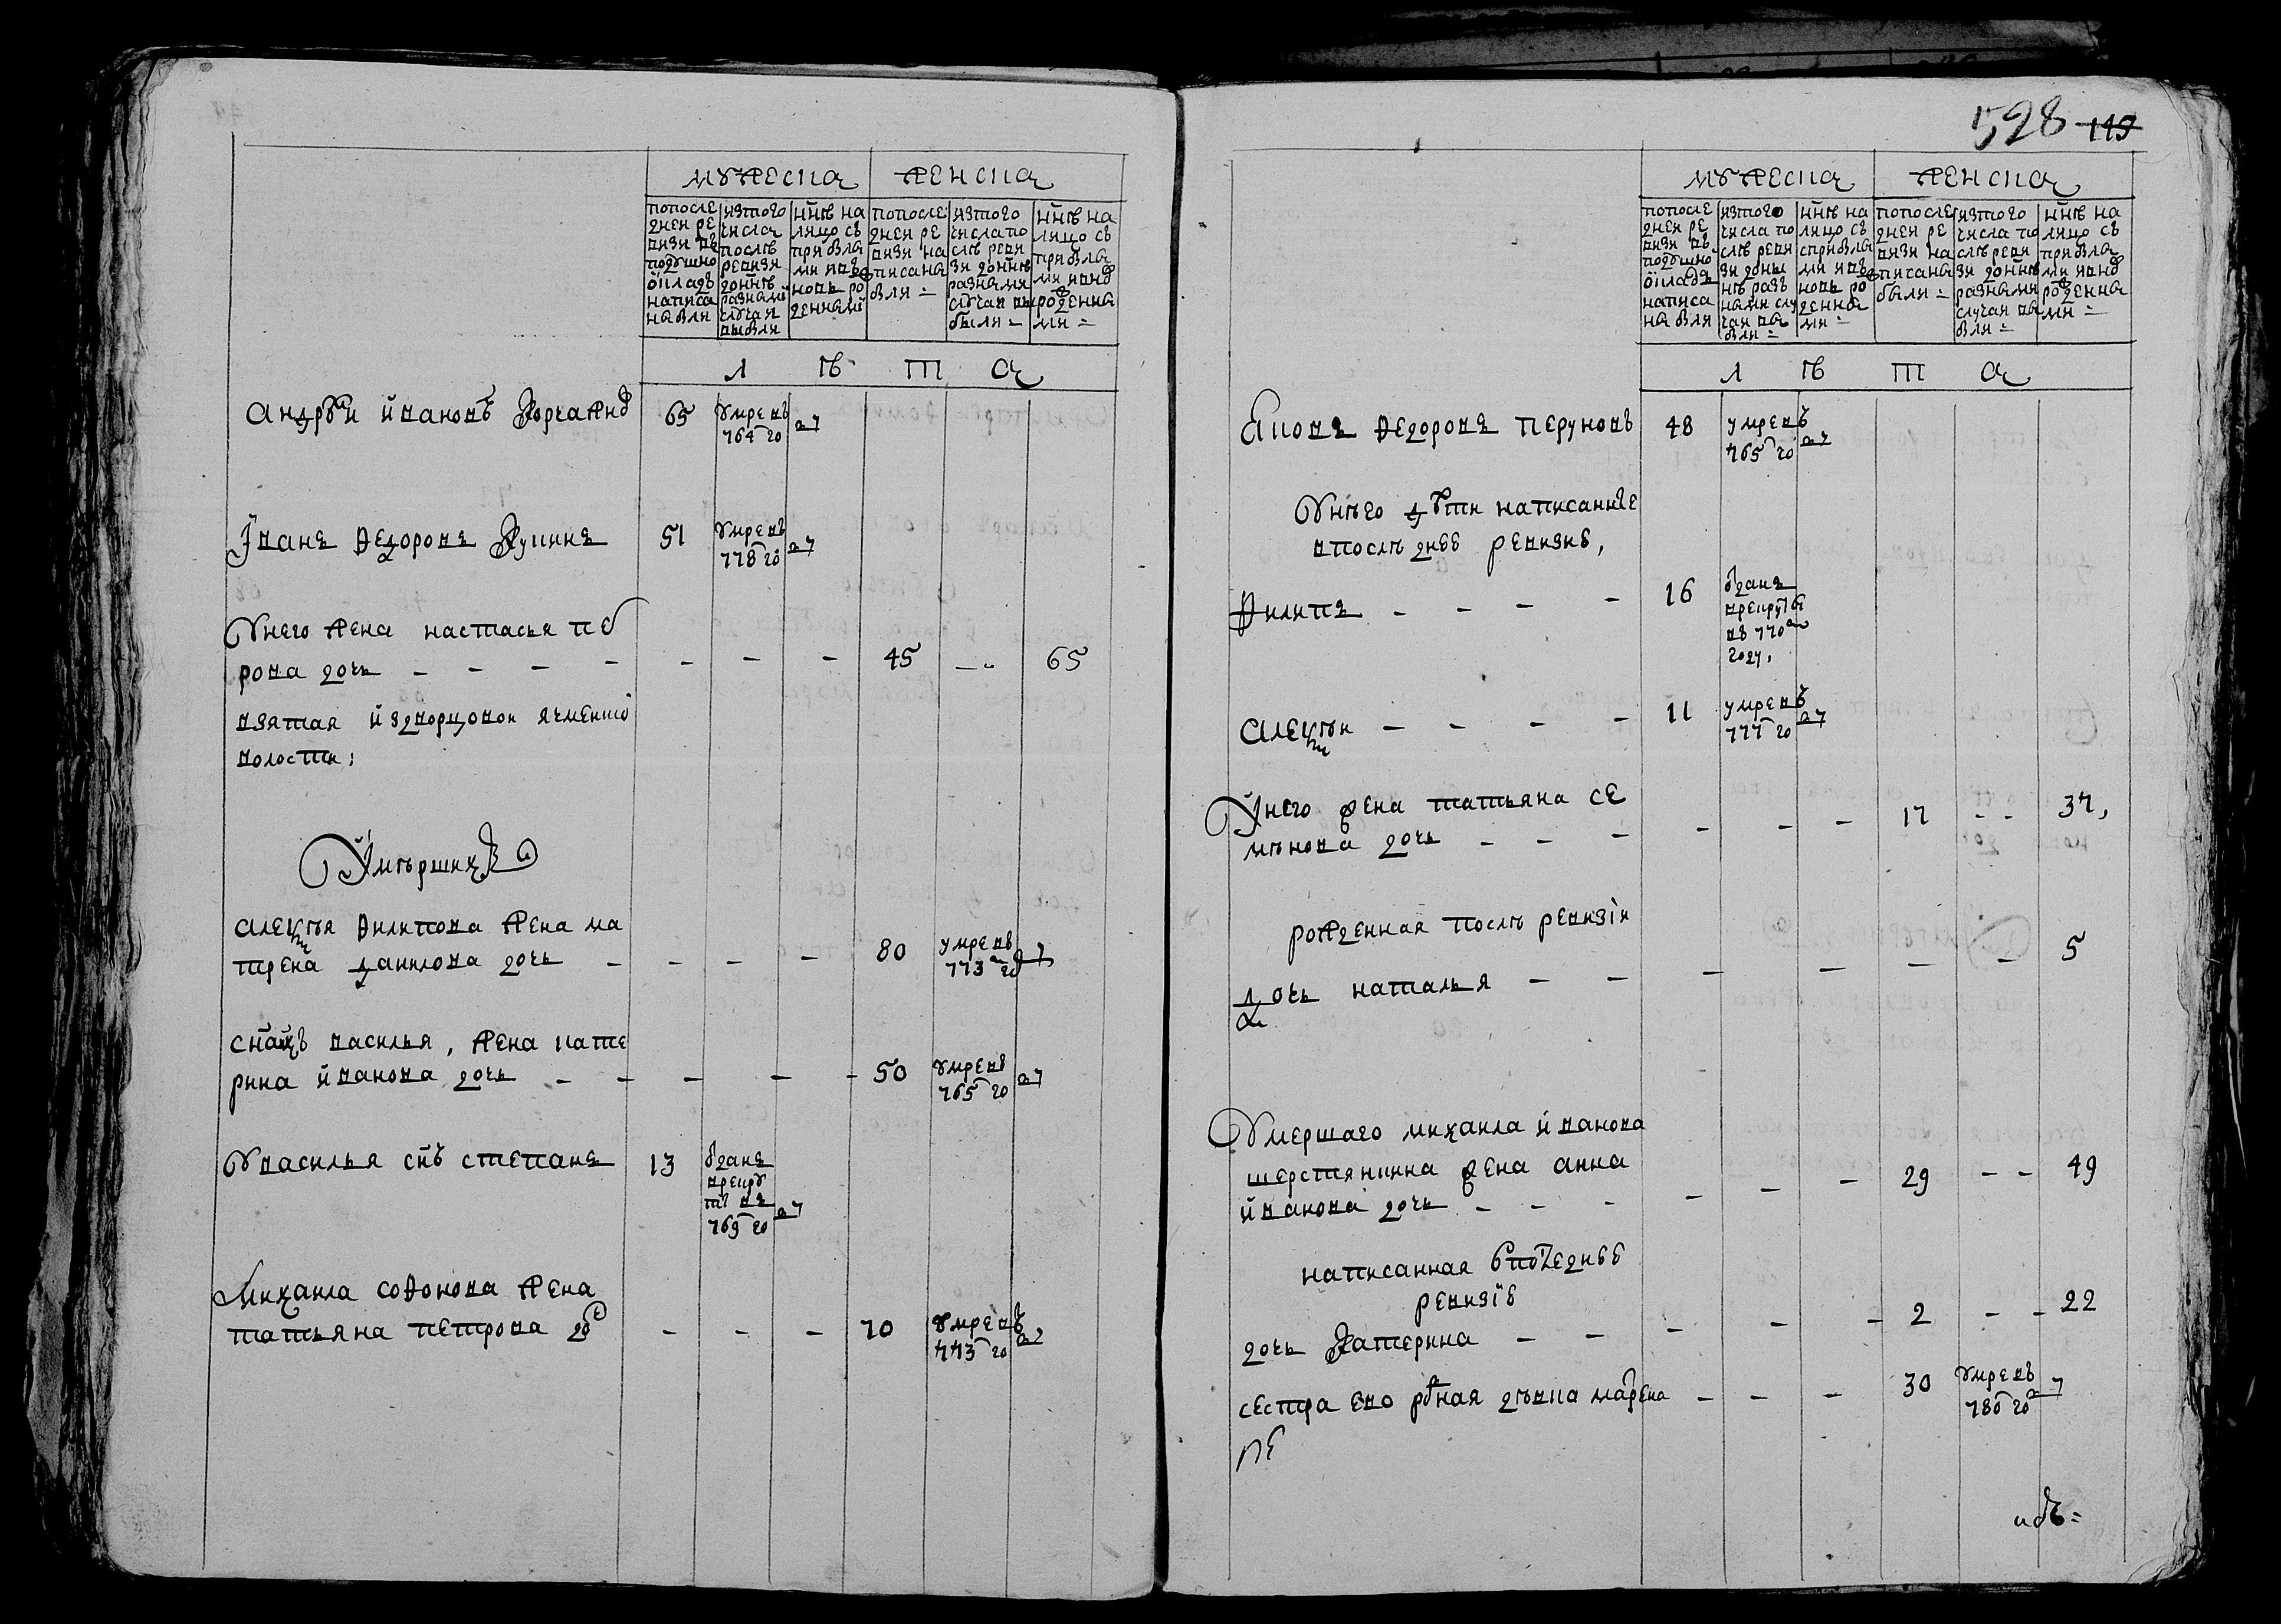 мужеска женска
попосле
дней ре
визи въ
подушно
окладъ
написа
на были
изтого
числа
после
ревизи
до ннѣ
разнами
случаи
выбыли
ннѣ на
лицо съ
прибылы
ми и въ
новь ро
жденнами
попосле
дней ре
визи на
писана
были =
изтого
числа по
слѣ реви
зи до ннѣ
разнами
случаи вы
были =
ннѣ на
лицо съ
прибылы
ми и внов
рожденна
ми =
л ѣ т а
андрѣи ивановъ 65 умревъ
764 году
Иванъ Федоровъ Кукинъ 51 умревъ
778 году
У него жена настасья пе
рова дочь - - - - - - - 45 - - 65
взятая из дворцовои
волости:
Умершихъ
алексѣя Филипова жена ма
трена данилова дочь - - - - 80 умревъ
773 году
сынъ василья, жена кате
рина иванова дочь - - - - - 50 умревъ
765 году
У василья сынъ степанъ 13 отданъ
врекру
ты въ
769 году
Михаила софонова жена
татьяна петрова до - - - 70 умревъ
773 году
528 149
мужеска женска
попосле
дней ре
визи въ
подушно
окладъ
написа
на были
изтого
числа по
слѣ реви
зи до ны
нѣ разъ
нами слу
чаи вы
были =
ннѣ на
лицо съ
прибылы
ми и въ
новь ро
жденна
ми =
попосле
дней ре
визи на
писана
были =
изтого
числа по
слѣ реви
зи до ннѣ
разнами
случаи вы
были =
ннѣ на
лицо съ
прибылы
ми и внов
рожденна
ми =
л ѣ т а
Яковъ Федоровъ Перуновъ 48 умревъ
765 году
У него дѣти написанные
впослѣднее ревизие,
Филипъ - - - - 16 отданъ
врекруты
въ 770
году,
алексѣи - - - - 11 умревъ
777 году
У него жена татьяна се
мѣнова дочь - - - - - - 17 - - 37,
рожденная послѣ ревизiи
дочь наталья - - - - - - 5
Умершаго михаила иванова
шерстянкина жена анна
иванова дочь - - - - - - 29 - - 49
написанная впоследнее
ревизiе
дочь Катерина - - - - - 2 - - 22
сестра ево родная дѣвка марена - - - 30 умревъ
780 году